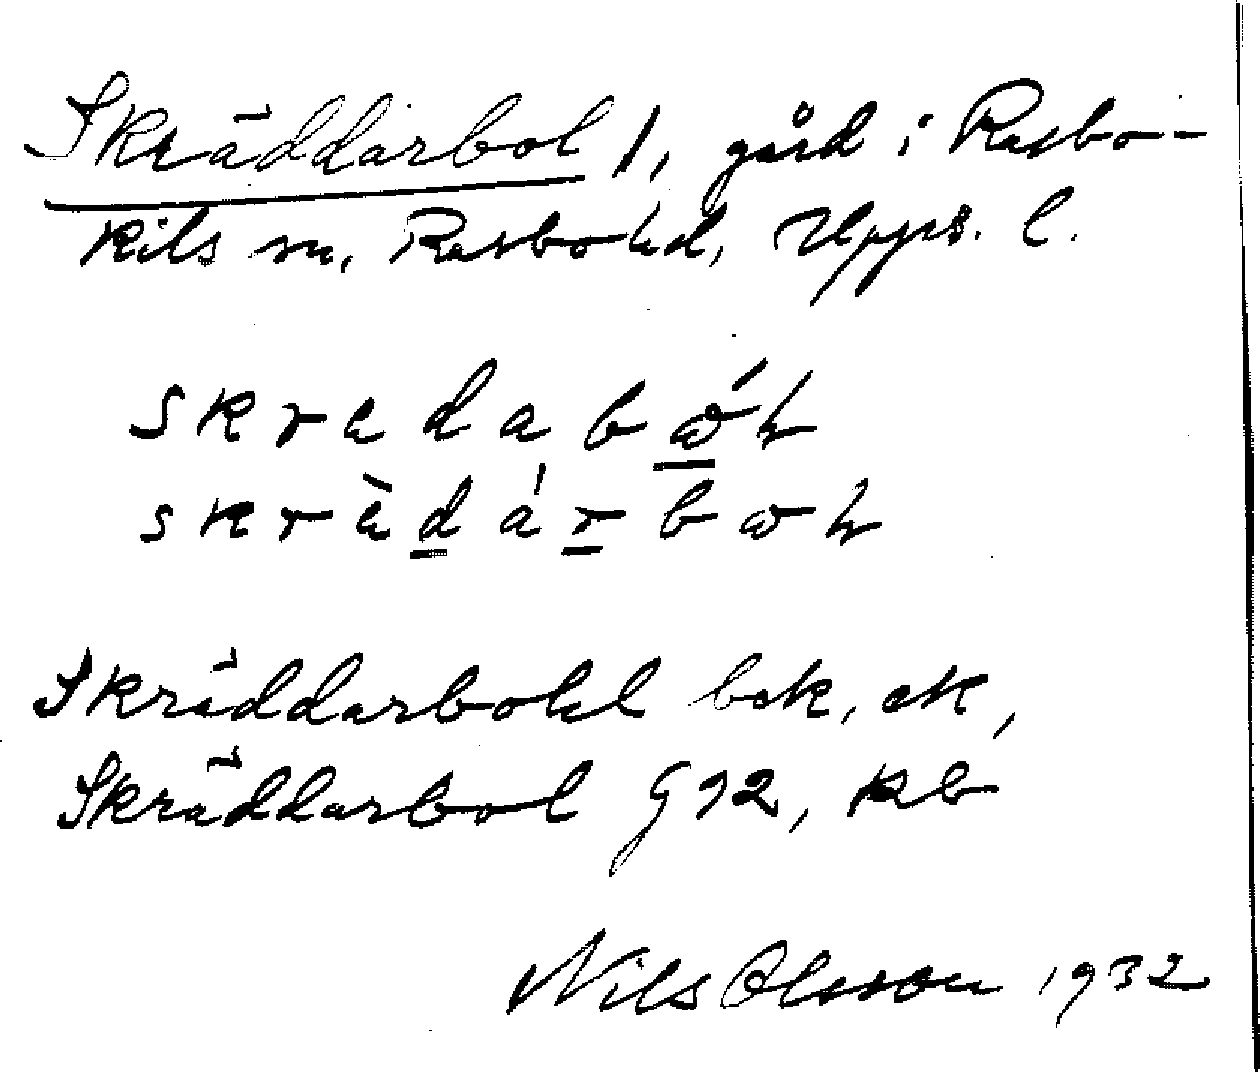 Skräddarbol 1, gård i Rasbo-
kils sn, Rasbo hd, Upps. l.
skrädabωh
skrädárbωh
Skräddarbohl bek, ek,
Skräddarbol G92, kb
Nils Olsson 1932